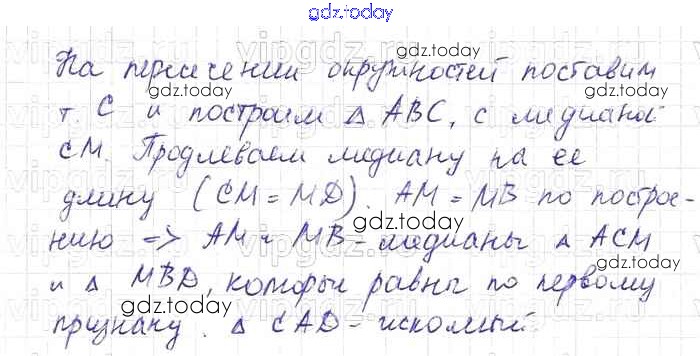 gdz.today
На пересечении окружностей поставим
т. С и построим △ ABC, с медианой
CM. Продлеваем медиану на ее
длину (CM = MD). AM = MB по построе-
нию => AM и MB - медианы △ ACM
и △ MBD, которые равны по первому
признаку. △ CAD - искомый.
gdz.today
gdz.today
gdz.today
gdz.today
gdz.today
gdz.today
gdz.today